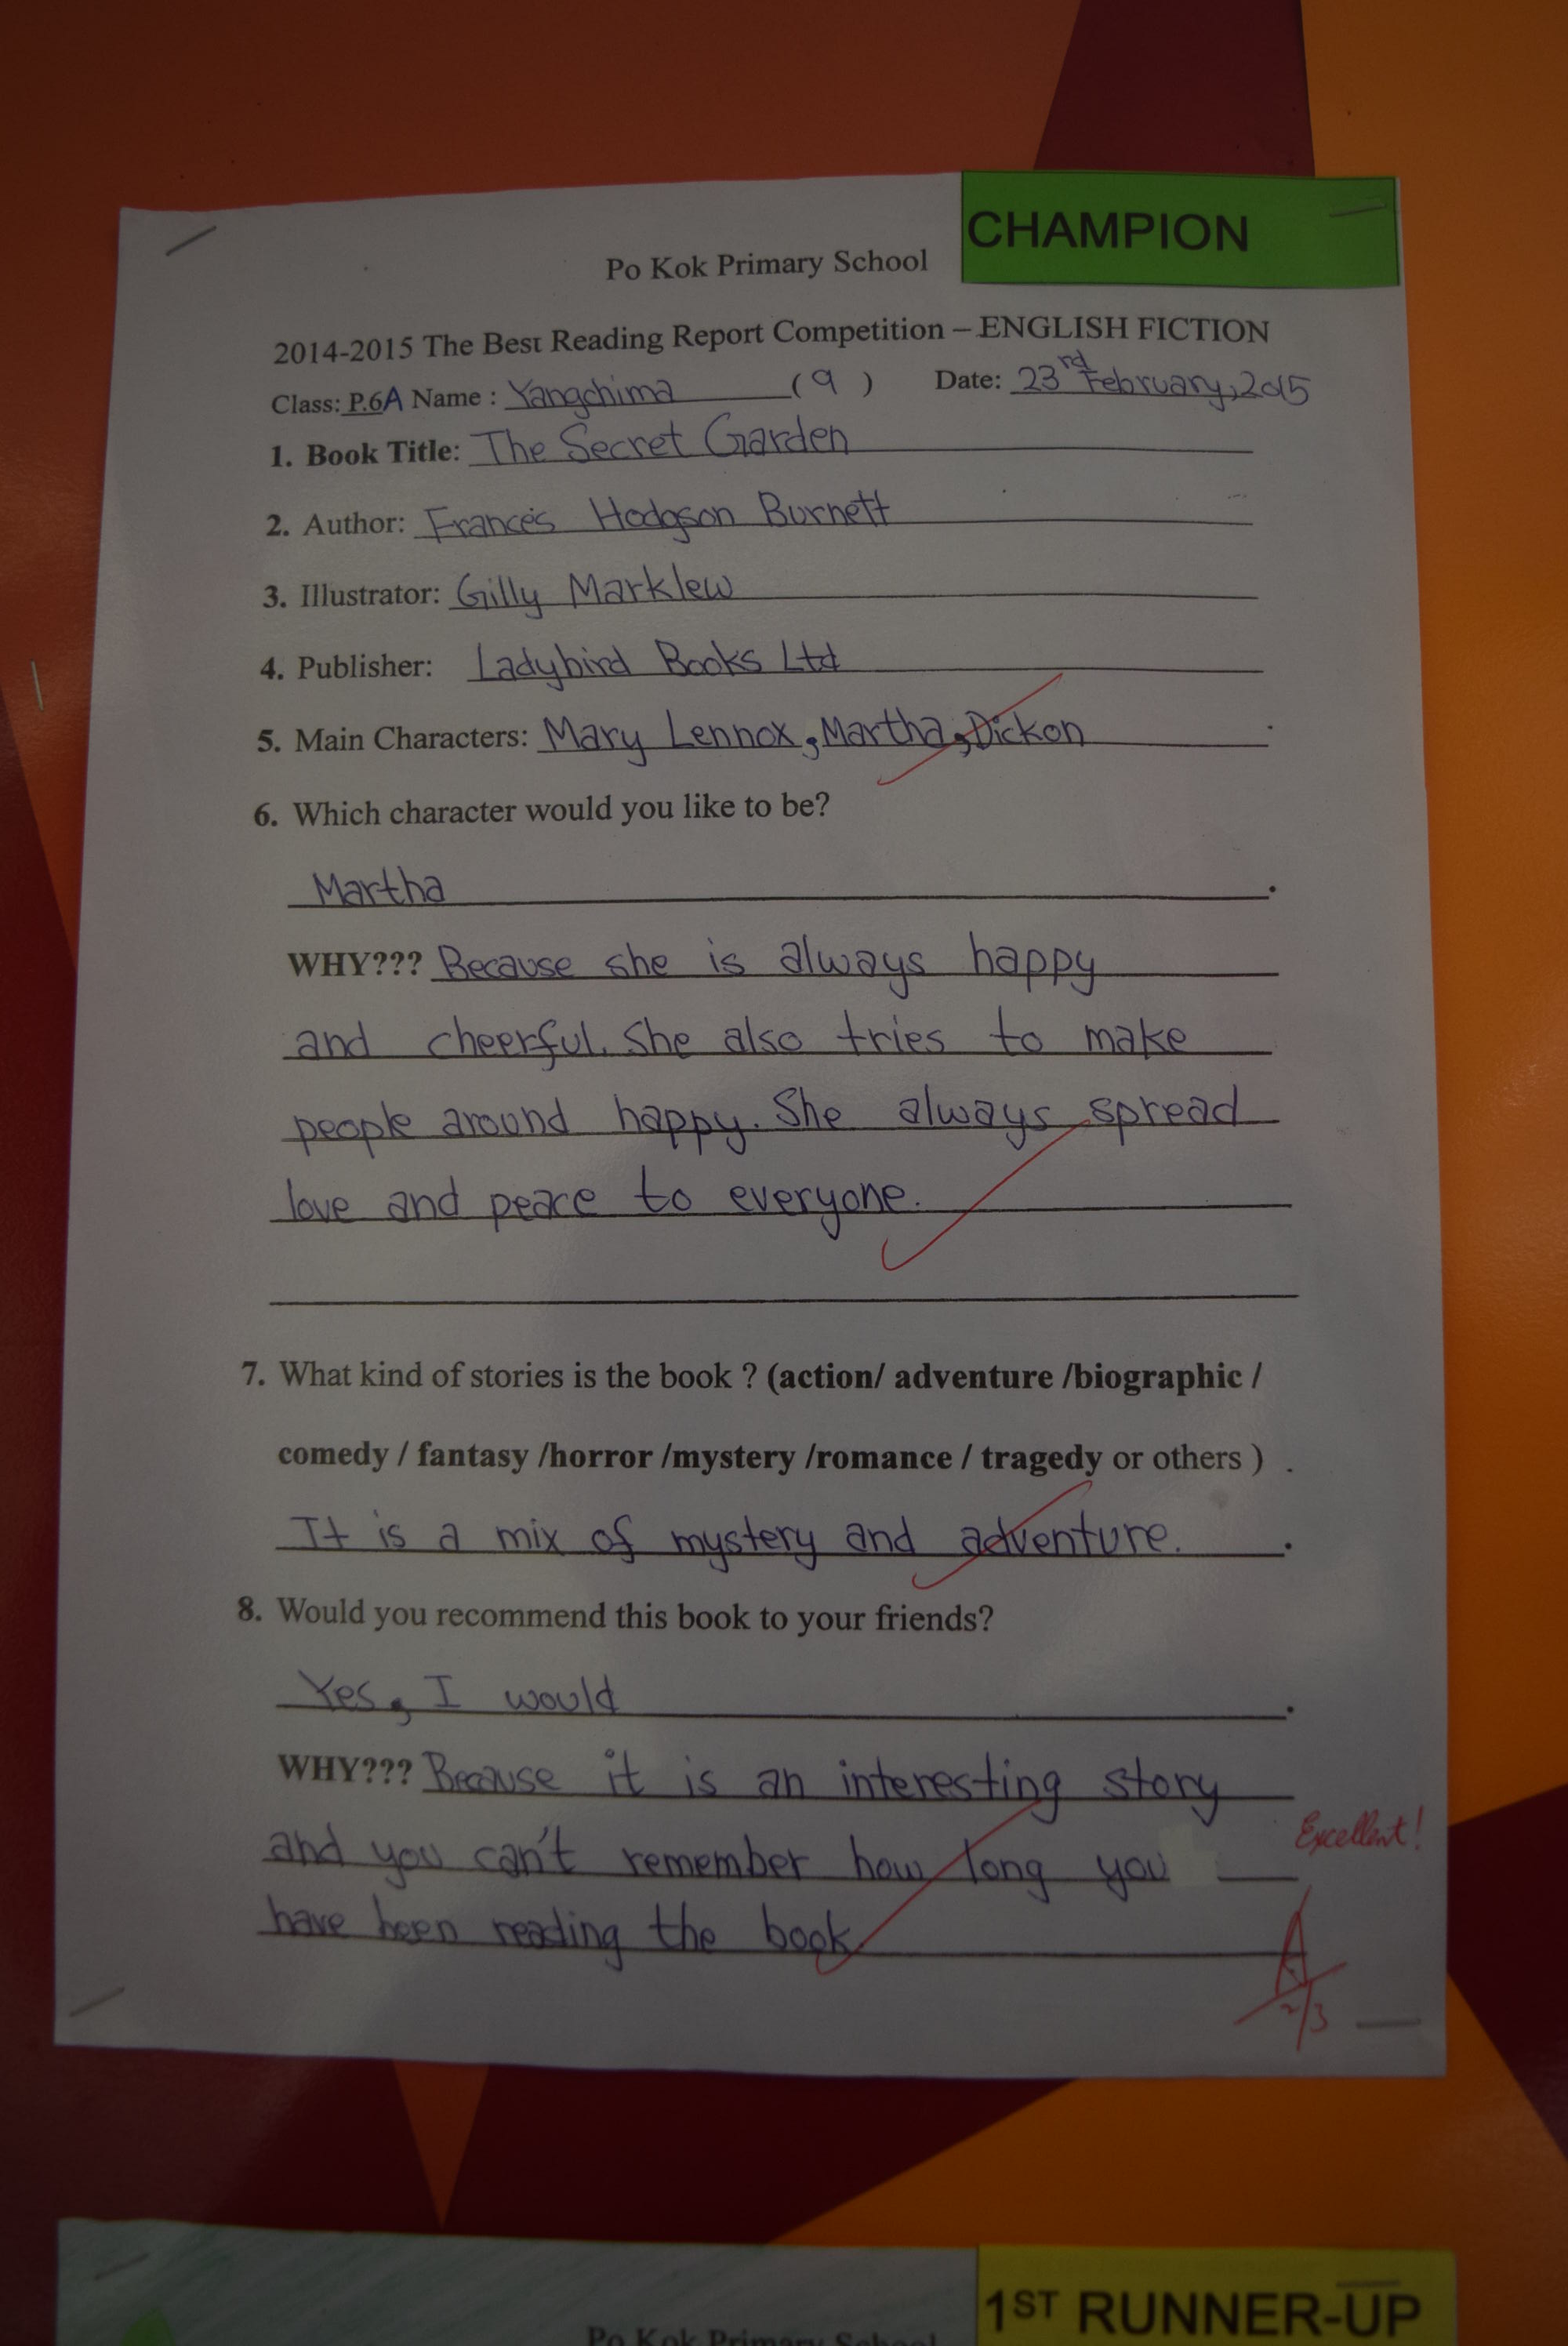 CHAMPION
Po Kok Primary School
2014-2015 The Best Reading Report Competition – ENGLISH FICTION
Class: P.6A Name : Yangchima (9) Date: 23rd February, 2015
1. Book Title: The Secret Garden
2. Author: Frances Hodgson Burnett
3. Illustrator: Gilly Marklew
4. Publisher: Ladybird Books Ltd
5. Main Characters: Mary Lennox, Martha, Dickon.
6. Which character would you like to be?
Martha.
WHY??? Because she is always happy
and cheerful. She also tries to make
people around happy. She always spread
love and peace to everyone.
7. What kind of stories is the book ? (action/ adventure /biographic /
comedy / fantasy /horror /mystery /romance / tragedy or others ) .
It is a mix of mystery and adventure. .
8. Would you recommend this book to your friends?
Yes, I would.
WHY??? Because it is an interesting story
and you can't remember how long you
have been reading the book
Excellent!
A
2/3
1ST RUNNER-UP
Po Kok Primary School